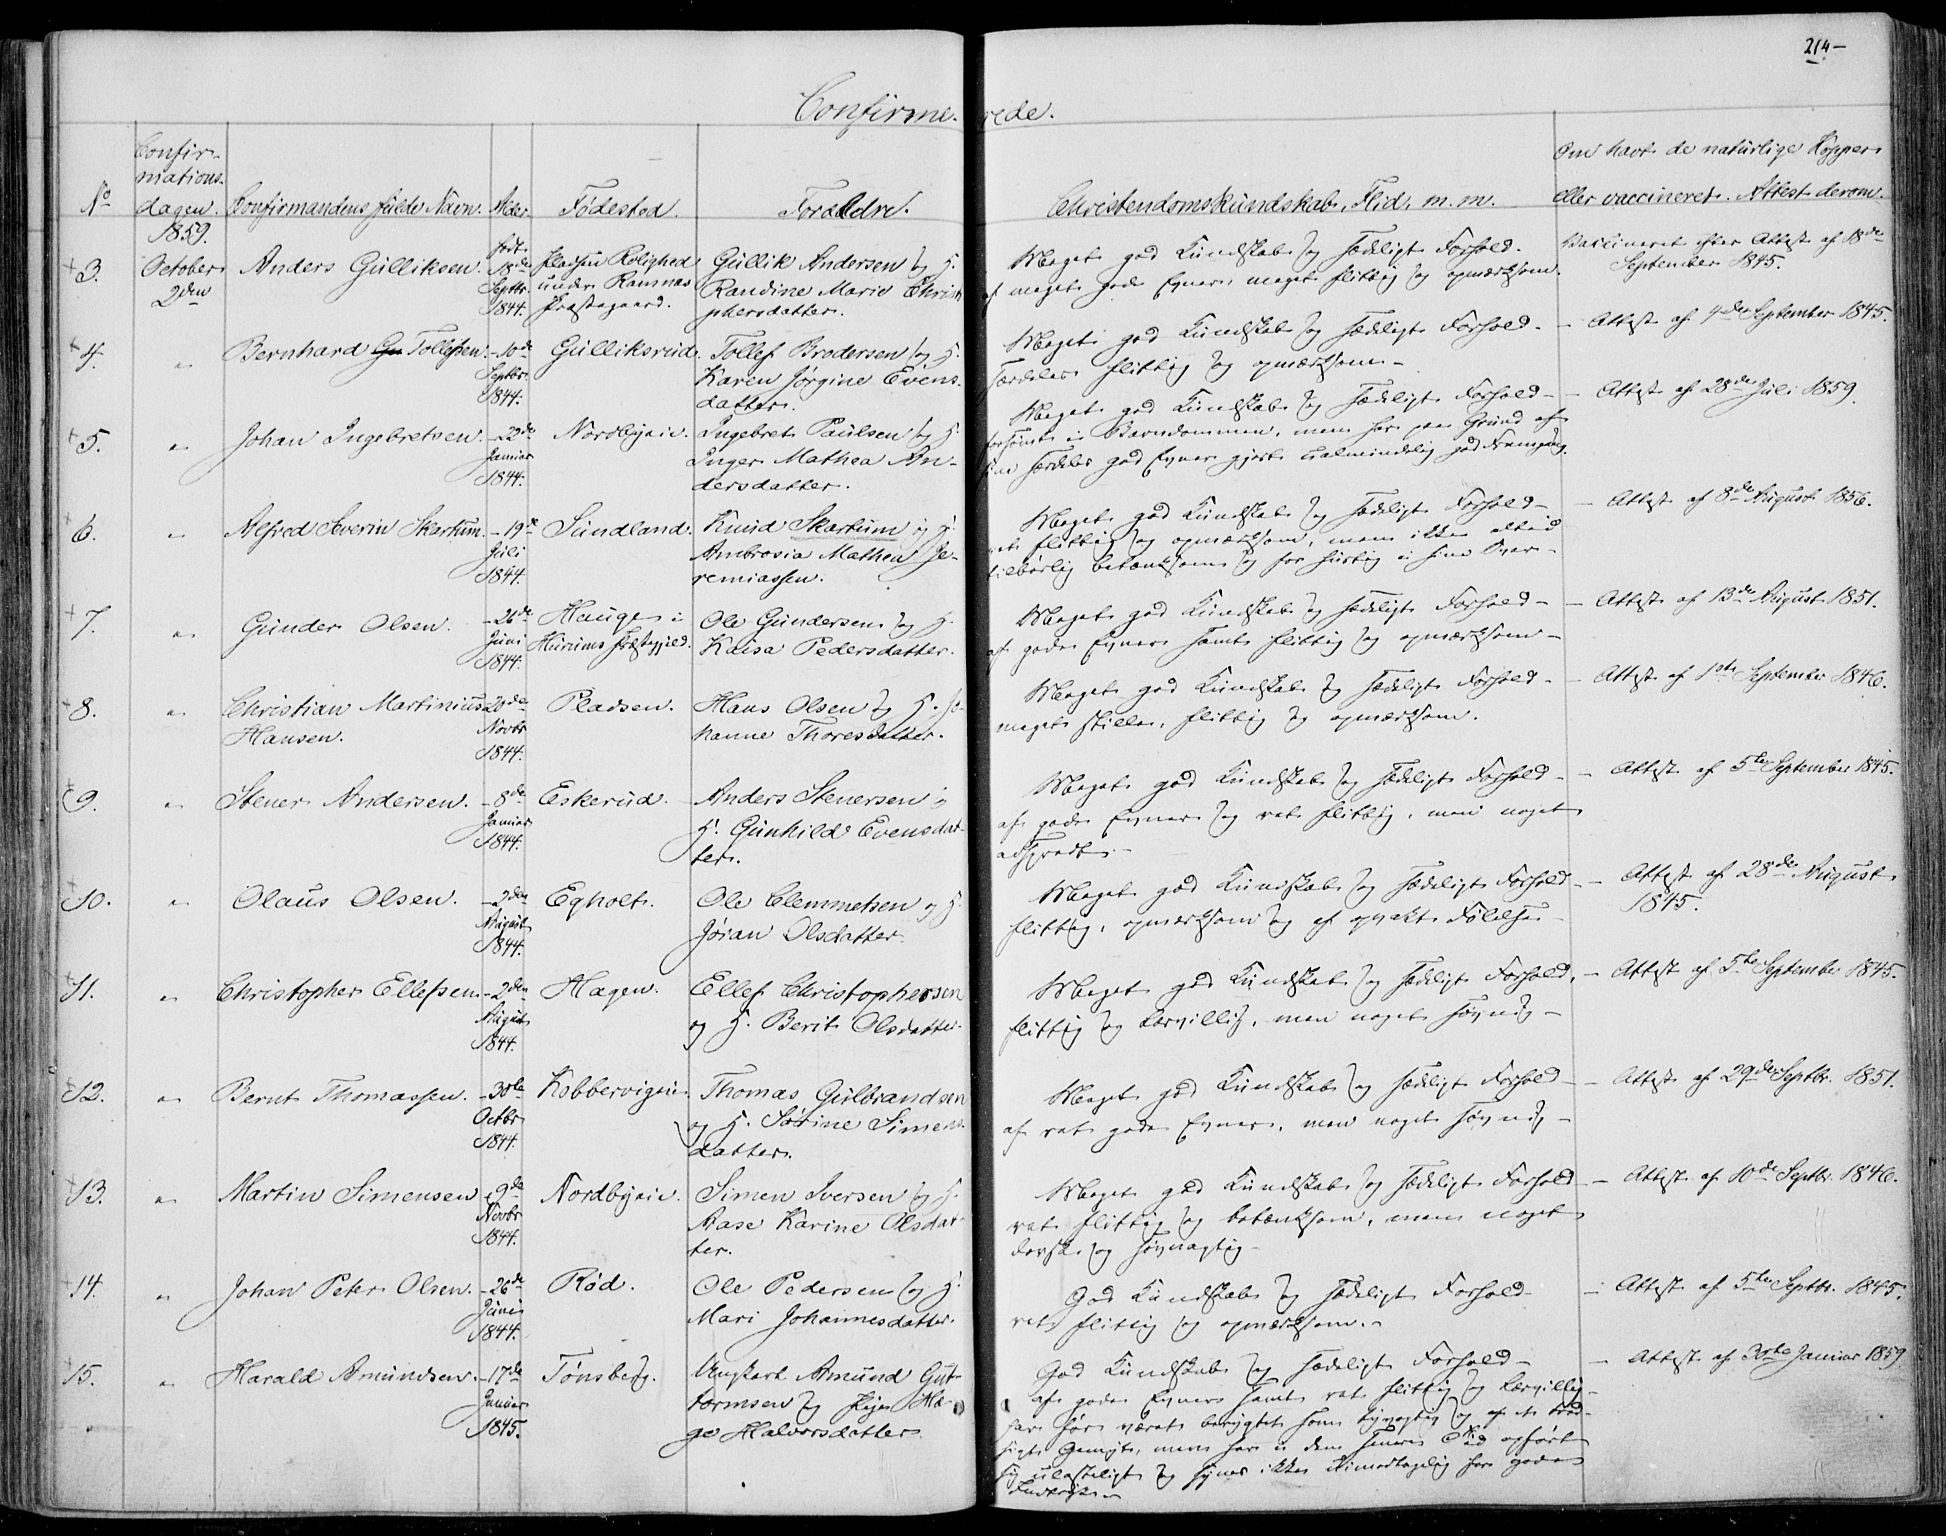 214-
Confirme- rede.
No
Confir-
mations-
dagen.
Confirmandens fulde Navn.
Alder.
Fødested.
Forældre.
Christendomskundskab, Flid, m. m.
Om havt de naturlige Kopper
eller vaccineret. Attest derom.
1859.
3.
October
2den
Anders Gulliksen.
født
18de
Septbr.
1844.
Pladsen Rolighed
under Ramnæs
Præstegaard.
Gullik Andersen og H.
Randine Marie Christo
phersdatter.
Meget god Kundskab og sædeligt Forhold.
af meget gode Evner, meget flittig og opmærksom.
Vaccineret efter Attest af 18de
September 1845.
4.
"
Bernhard Gu Tollefsen.
- 10de
Septbr.
1844.
Gulliksrud.
Tollef Brodersen og H.
Karen Jørgine Evens-
datter.
Meget god Kundskab og sædeligt Forhold.
særdeles flittig og opmærksom -
- Attest af 4de September 1845.
5.
"
Johan Ingebretsen.
- 22de
Januar
1844.
Nordbyeie.
Ingebret Paulsen og H.
Inger Mathea An-
dersdatter.
Meget god Kundskab og sædeligt Forhold -
forsømt i Barndommen, men har paa Grund af
sine særdeles god Evner gjort ualmindelig god Fremgang.
- Attest af 28de Juli 1859.
6.
"
Alfred Severin Skartum.
- 19de
Juli
1844.
Sundland.
Knud Skartum og H.
Ambrosia Mathea Je-
remiassen.
Meget god Kundskab og sædeligt Forhold -
ret flittig og opmærksom, men ikke altid
tilbørlig betænksom og for hurtig i sine Svar -
- Attest af 8de August 1856.
7.
"
Gunder Olsen.
- 26de
Juni
1844.
Hauge i
Hurums Præstegjeld.
Ole Gundersen og H.
Kaisa Pedersdatter.
Meget god Kundskab og sædeligt Forhold -
af gode Evner samt flittig og opmærksom -
- Attest af 13de August 1851.
8.
"
Christian Martinius
Hansen.
20de
Novbr
1844.
Pladsen.
Hans Olsen og H. Jo-
hanne Thoresdatter.
Meget god Kundskab og sædeligt Forhold -
meget stille, flittig og opmærksom.
- Attest af 1ste September 1846.
9.
"
Stener Andersen.
- 8de
Januar
1844.
Eskerud.
Anders Stenersen og
H. Gunhild Evensdat-
ter.
Meget god Kundskab og sædeligt Forhold -
af gode Evner og ret flittig, men noget
adspredt -
- Attest af 5te September 1845.
10.
"
Olaus Olsen.
- 2den
August
1844.
Egholt.
Ole Clemmetsen og H.
Jøran Olsdatter.
Meget god Kundskab og sædeligt Forhold -
flittig, opmærksom og af opvakt Følelse -
- Attest af 28de August
1845.
11.
"
Christopher Ellefsen.
- 2den
August
1844.
Hagen.
Ellef Christophersen
og H. Berit Olsdatter.
Meget god Kundskab og sædeligt Forhold,
flittig og lærvillig, men noget søvnig -
- Attest af 5te September 1845.
12.
"
Bernt Thomassen.
- 30te
Octbr
1844.
Kobbervigeie.
Thomas Gulbrandsen
og H. Sørine Simens-
datter.
Meget god Kundskab og sædeligt Forhold -
af ret gode Evner, men noget søvnig -
- Attest af 29de Septbr. 1851.
13.
"
Martin Simensen
- 9de
Novbr
1844.
Nordbyeie.
Simen Iversen og H.
Aase Karine Olsdat-
ter.
Meget god Kundskab og sædeligt Forhold
ret flittig og betænksom, men noget
dorsk og søvnagtig -
- Attest af 10de Septbr. 1846.
14.
"
Johan Peter Olsen.
- 26de
Juni
1844.
Rød.
Ole Pedersen og H.
Mari Johannesdatter.
God Kundskab og sædeligt Forhold -
ret flittig og opmærksom. -
- Attest af 5te Septbr. 1845.
15.
"
Harald Amundsen.
- 17de
Januar
1845.
Tønsberg.
Ungkarl Amund Gut-
tormsen og Pige He-
ge Halvorsdatter.
God Kundskab og sædeligt Forhold -
af gode Evner samt ret flittig og lærvillig -
har før været berygtet som tyvagtig og af et
Gemyt, men har i den senere Tid opført
sig ulasteligt og synes ikke uimodtagelig for gode
Indtryk -
- Attest af 30te Januar 1859